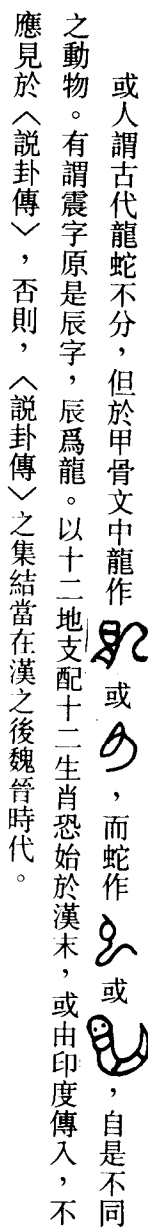 或人謂古代龍蛇不分，但於甲骨文中龍作或，而蛇作或，自是不同
之動物。有謂震字原是辰字，辰爲龍。以十二地支配十二生肖恐始於漢末，或由印度傳入，不
應見於〈説卦傳〉，否則，〈説卦傳〉之集結當在漢之後魏晉時代。